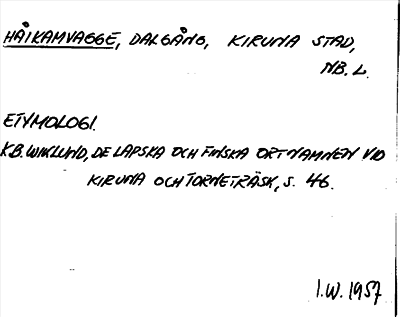 HÅIKAMVAGGE, DALGÅNG, KIRUNA STAD,
NB. L.
ETYMOLOGI.
K.B. WIKLUND, DE LAPSKA OCH FINSKA ORTNAMNEN VID
KIRUNA OCH TORNETRÄSK, S. 46.
I.W. 1957